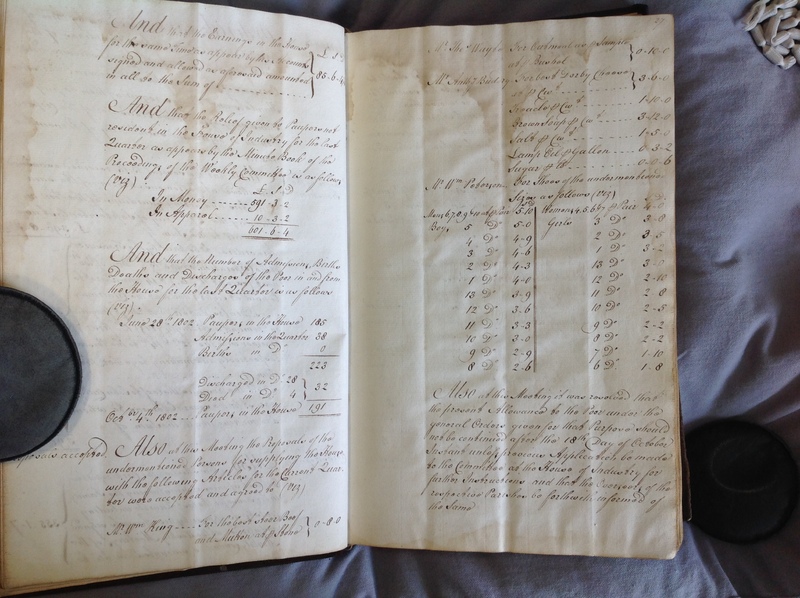 And that the Earnings in the House
for the same Time as appears by the Accounts
signed and allowed as aforesaid amounted
in all to the Sum of
£ S D
85-6-4
And that the Relief given to Paupers not
resident in the House of Industry for the last
Quarter as appears by the Minute Book of the
Proceedings of the Weekly Committee is as follows
(viz)
£ S D
In Money 591-3-2
In Apparel 10-3-2
601-6-4
And that the Number of Admissions, Births
Deaths and Discharges of the Poor in and from
the House for the last Quarter is as follows
(viz)
June 28th 1802 Paupers in the House 185
Admissions in the Quarter 38
Births in Do 0
223
Discharged in Do 28
Died in Do 4 } 32
Octbr 4th 1802 Paupers in the House 191
Proposals accepted
Also at this Meeting the Proposals of the
undermentioned Persons for supplying the House
with the following Articles for the Current Quar-
ter were accepted and agreed to (viz)
Mr Wm King For the best steer Beef
and Mutton at p Stone } 0-8-0
27
Mr Thos For Oatmeal as p Sample
at p Bushel } 0-10-0
Mr Ambs For best Derby Cheese
at p Cwt } 3-6-0
Treacle p Cwt 1-10-0
Brown Soap p Cwt 3-12-0
Salt p Cwt 1-5-0
Lamp Oil p Gallon 0-3-2
Sugar p lb 0-0-6
Mr Wm Peterson For Shoes of the undermentioned
Sizes as follows (viz)
Mens 6,7,8,9 at p Pair 5-10 Womens 4,5,6 &7 p Pair 4-0
Boys 5 Do 5-0 Girls 3 Do 3-8
4 Do 4-9 2 Do 3-5
3 Do 4-6 1 Do 3-2
2 Do 4-3 13 Do 3-0
1 Do 4-0 12 Do 2-10
13 Do 3-9 11 Do 2-8
12 Do 3-6 10 Do 2-5
11 Do 3-3 9 Do 2-2
10 Do 3-0 8 Do 2-2
9 Do 2-9 7 Do 1-10
8 Do 2-6 6 Do 1-8
Also at this Meeting it was resolved that
the present Allowances to the Poor under the
general Orders given for that Purpose should
not be continued after the 18th Day of October
Instant unless previous Application be made
to the Committee at the House of Industry for
further Instructions and that the Overseers of the
respective Parishes be forthwith informed of
the Same